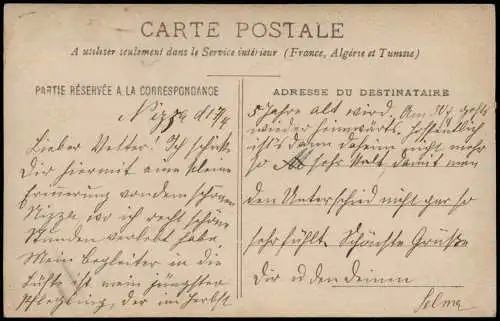 CARTE POSTALE
A utiliser seulement dans le Service intérieur (France, Algérie et Tunisie)
PARTIE RÉSERVÉE A LA CORRESPONDANCE
Nizza d 17/4
Lieber Vetter! Ich schicke
Dir hiermit eine kleine
Erinnerung von dem schönen
Nizza, wo ich recht schöne
Stunden verlebt habe.
Mein Begleiter in die
Lüfte ist mein jüngster
Pflegling, der im Herbst
ADRESSE DU DESTINATAIRE
5 Jahre alt wird. Am 30. gehts
wieder heimwärts. Hoffentlich
ist's dann daheim nicht mehr
so sehr kalt, damit man
den Unterschied nicht gar so
sehr fühlt. Schönste Grüße
Dir u den deinen
Selma